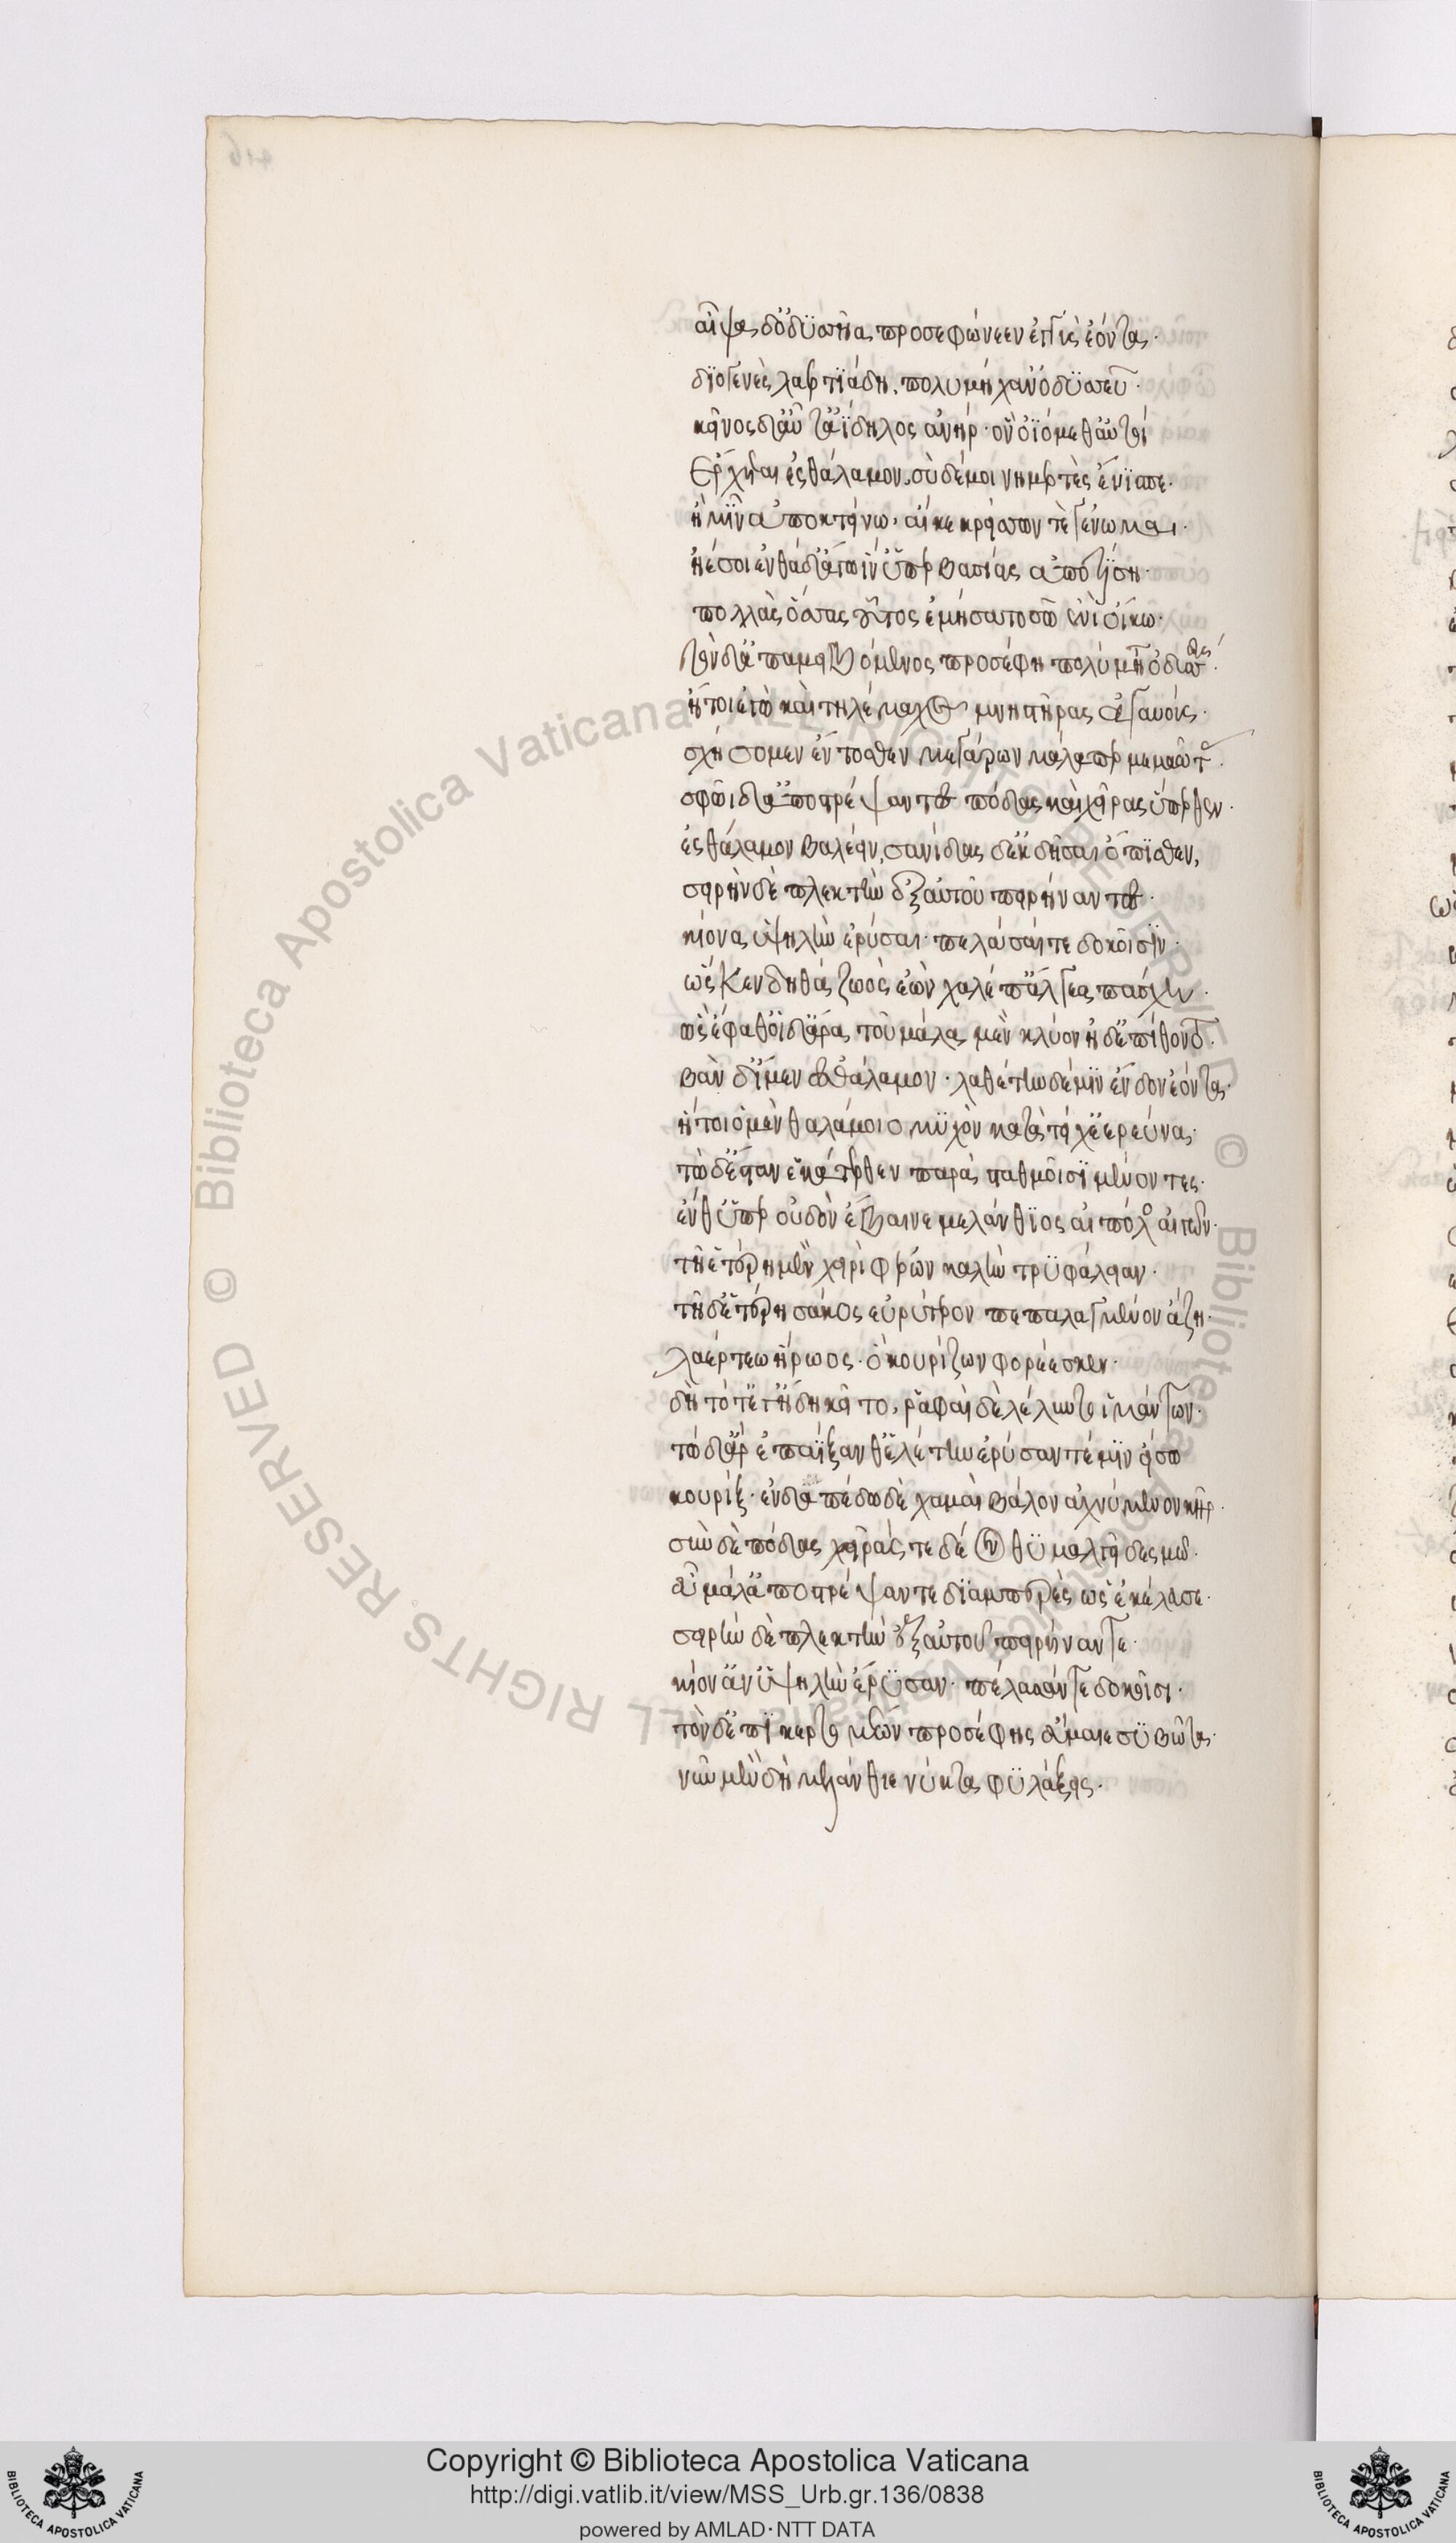 αἶψα δ' ὀδυσσῆα προσεφώνεεν ἐγγὺς ἐόντα·
διογενὲς λαερτιάδη, πολυμήχαν' ὀδυσσεῦ·
κεῖνος δ' αὖτ' ἀΐδηλος ἀνήρ· ὃν ὀϊόμεθ' αὐτοί
ἔρχεται ἐς θάλαμον, σὺ δέ μοι νημερτὲς ἔνισπε·
ἤ μιν ἀποκτείνω, αἴ κε κρείσσων γε γένωμαι·
ἦέ σοι ἐνθάδ' ἄγω ἵν' ὑπερβασίας ἀποτίση·
πολλὰς ὅσσας οὗτος ἐμήσατο σῷ ἐνὶ οἴκω·
τὸν δ' ἀπαμειβόμενος προσέφη πολύμητις ὀδυσσεύς·
ἤτοι ἐγὼ καὶ τηλέμαχος μνηστῆρας ἀγαυούς·
σχήσομεν ἔντοσθεν μεγάρων μάλα περ μεμαῶτας·
σφῶι δ' ἀποστρέψαντε πόδας καὶ χεῖρας ὕπερθεν·
ἐς θάλαμον βαλέειν, σανίδας δ' ἐκδῆσαι ὄπισθεν,
σειρὴν δὲ πλεκτὴν ἐξ αὐτοῦ πειρήναντε·
κίονα ὑψηλὴν ἐρύσαι· πελάσαι τε δοκοῖσιν·
ὥς κεν δηθὰ ζωὸς ἐὼν χαλέπ' ἄλγεα πάσχη·
ὣς ἔφαθ' οἱ δ' ἄρα τοῦ μάλα μὲν κλύον ἠδ' ἐπίθοντο·
βὰν δ' ἴμεν ἐς θάλαμον· λαθέτην δέ μιν ἔνδον ἐόντα·
ἤτοι ὁ μὲν θαλάμοιο μυχὸν κατὰ τεύχε' ἐρεύνα·
τὼ δ' ἔσταν ἑκάτερθεν παρὰ σταθμοῖσι μένοντες·
ἔνθ' ὑπὲρ οὐδὸν ἔβαινε μελάνθιος αἰπόλος αἰγῶν·
τῆ ἑτέρη μὲν χειρὶ φέρων καλὴν τρυφάλειαν·
τῆ δ' ἑτέρη σάκος εὐρὺ γέρον πεπαλαγμένον ἄζη·
λαέρτεω ἥρωος· ὃ κουρίζων φορέεσκεν·
δὴ τότε γ' ἤδη κεῖτο, ῥαφαὶ δὲ λέλυντο ἱμάντων·
τὼ δ' ἄρ' ἐπαΐξανθ' ἑλέτην ἐρύσαν τέ μιν εἴσω
κουρίξ· ἐν δαπέδω δὲ χαμαὶ βάλον ἀχνύμενον κῆρ·
σὺν δὲ πόδας χεῖράς τε δέον θυμαλγέι δεσμῶ·
εὖ μάλ' ἀποστρέψαντε διαμπερὲς ὡς ἐκέλευσε·
σειρὴν δὲ πλεκτὴν ἐξ αὐτοῦ πειρήναντε·
κίον' ἀν' ὑψηλὴν ἔρυσαν· πέλασάν τε δοκοῖσι·
τὸν δ' ἐπικερτομέων προσέφης εὔμαιε συβῶτα·
νῦν μὲν δὴ μελάνθιε νύκτα φυλάξεις·
Copyright © Biblioteca Apostolica Vaticana
http://digi.vatlib.it/view/MSS_Urb.gr.136/0838
powered by AMLAD·NTT DATA